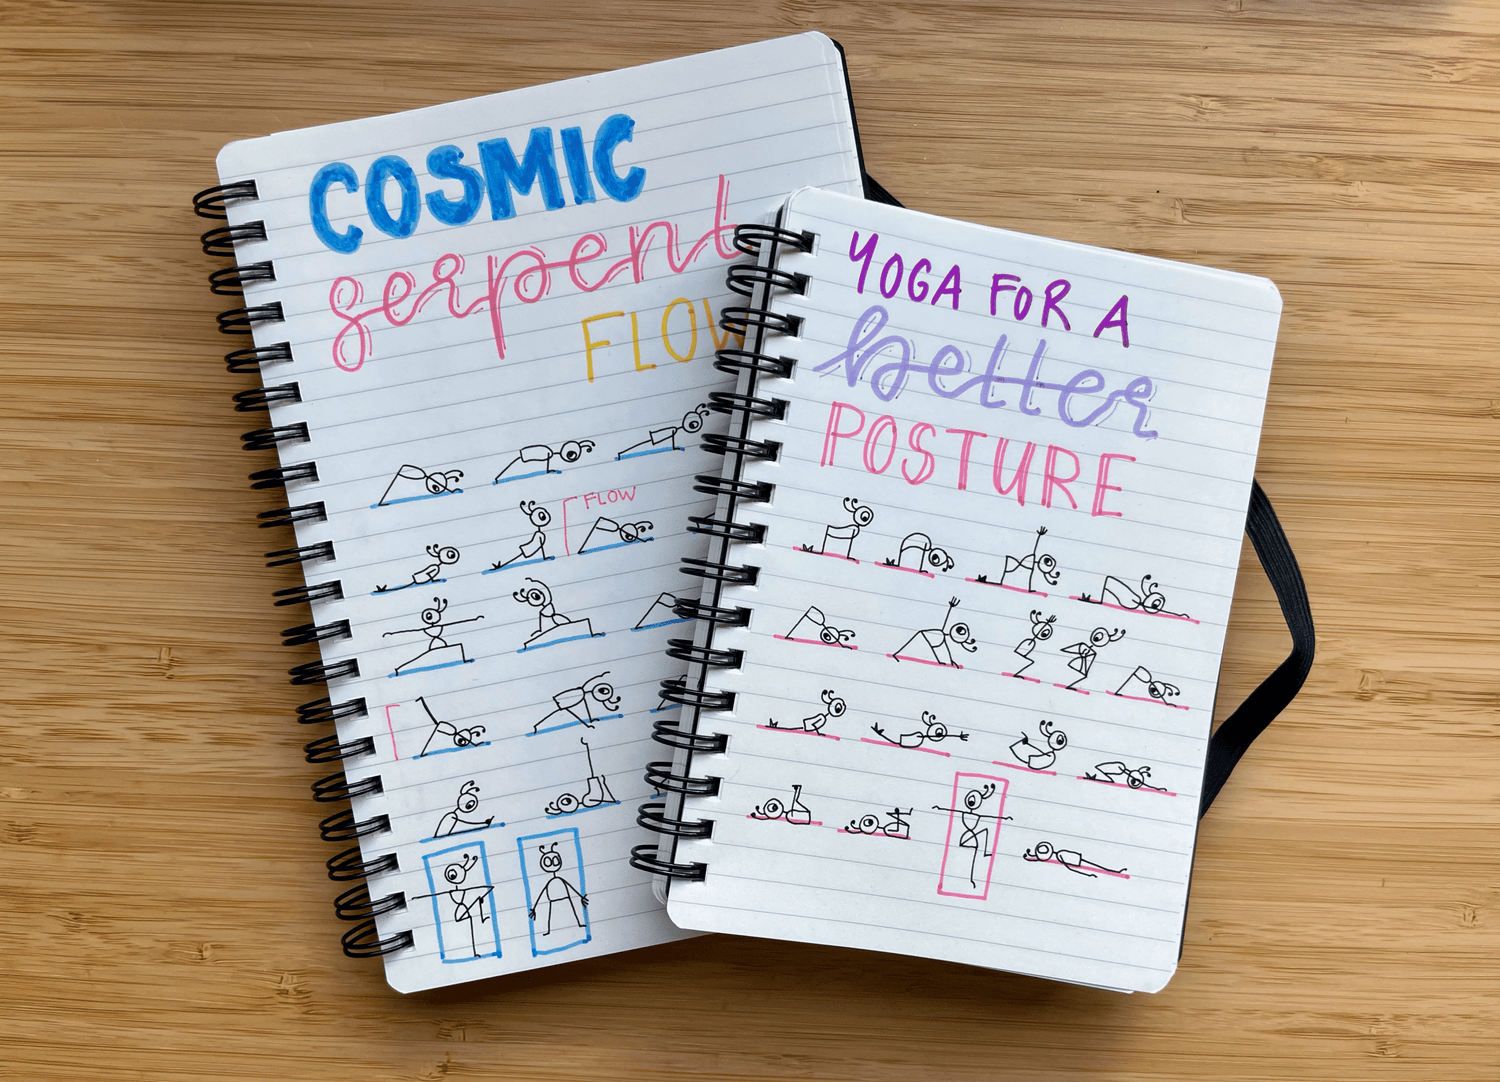 COSMIC
serpent
FLOW
FLOW
YOGA FOR A
better
POSTURE